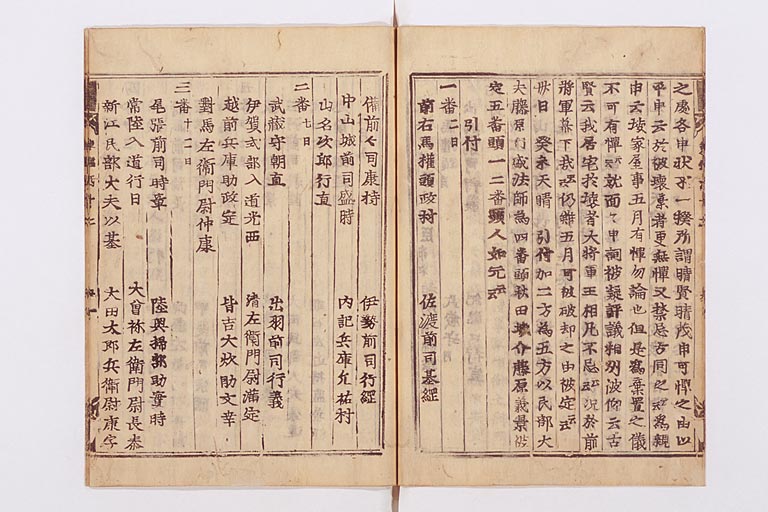 之處各申状不一揆所謂晴賢晴茂申可憚之由以
平申云於破壊棄者更無憚又禁忌方同之云々為親
申云按家屋事五月有憚勿論也但是爲棄置之儀
不可有憚云々就面々申詞被凝評議相州被仰云吉
賢云我居宅於壊者大將軍王相凡不忌云々況於前
將軍幕下哉云々仍雖五月可被破却之由被定云々
廿日 癸未天晴 引付加二方為五方以民部大
夫藤原行盛法師為四番頭秋田城介藤原義景被
定五番頭一二番頭人如元云々
引付
一番 二日
前右馬權頭政村 佐渡前司基經
備前々司康持 伊勢前司行經
中山城前司盛時 内記兵庫允祐村
山名次郎行直
二番 七日
武藏守朝直 出羽前司行義
伊賀式部入道光西 清左衛門尉滿定
越前兵庫助政定 皆吉大炊助文幸
對馬左衛門尉仲康
三番 十二日
尾張前司時章
常陸入道行日 大曾祢左衛門尉長泰
新江民部大夫以基 大田太郎兵衛尉康宗
陸奥掃部助實時